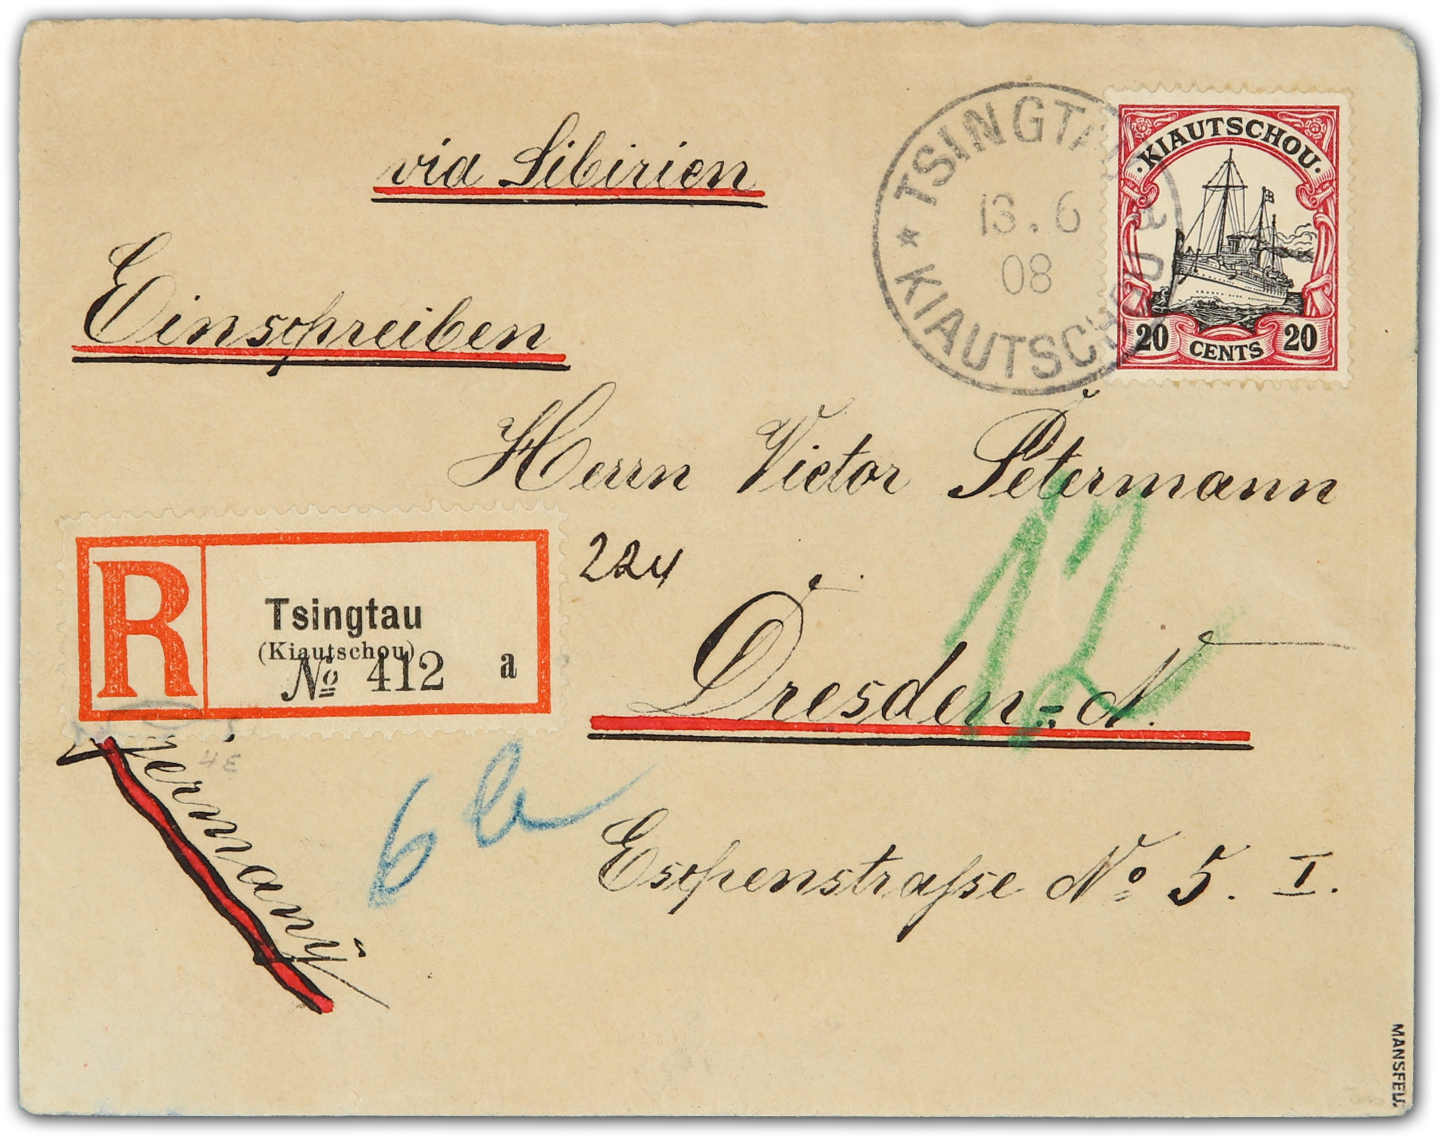 via Sibirien
TSINGTAU
13.6
08
KIAUTSCHOU
·KIAUTSCHOU·
20 CENTS 20
Einschreiben
Herrn Victor Petermann
224
12
R Tsingtau
(Kiautschou)
№ 412 a
Dresden-N.
Germany
6b
Eschenstraſse No 5. I.
MANSFELD